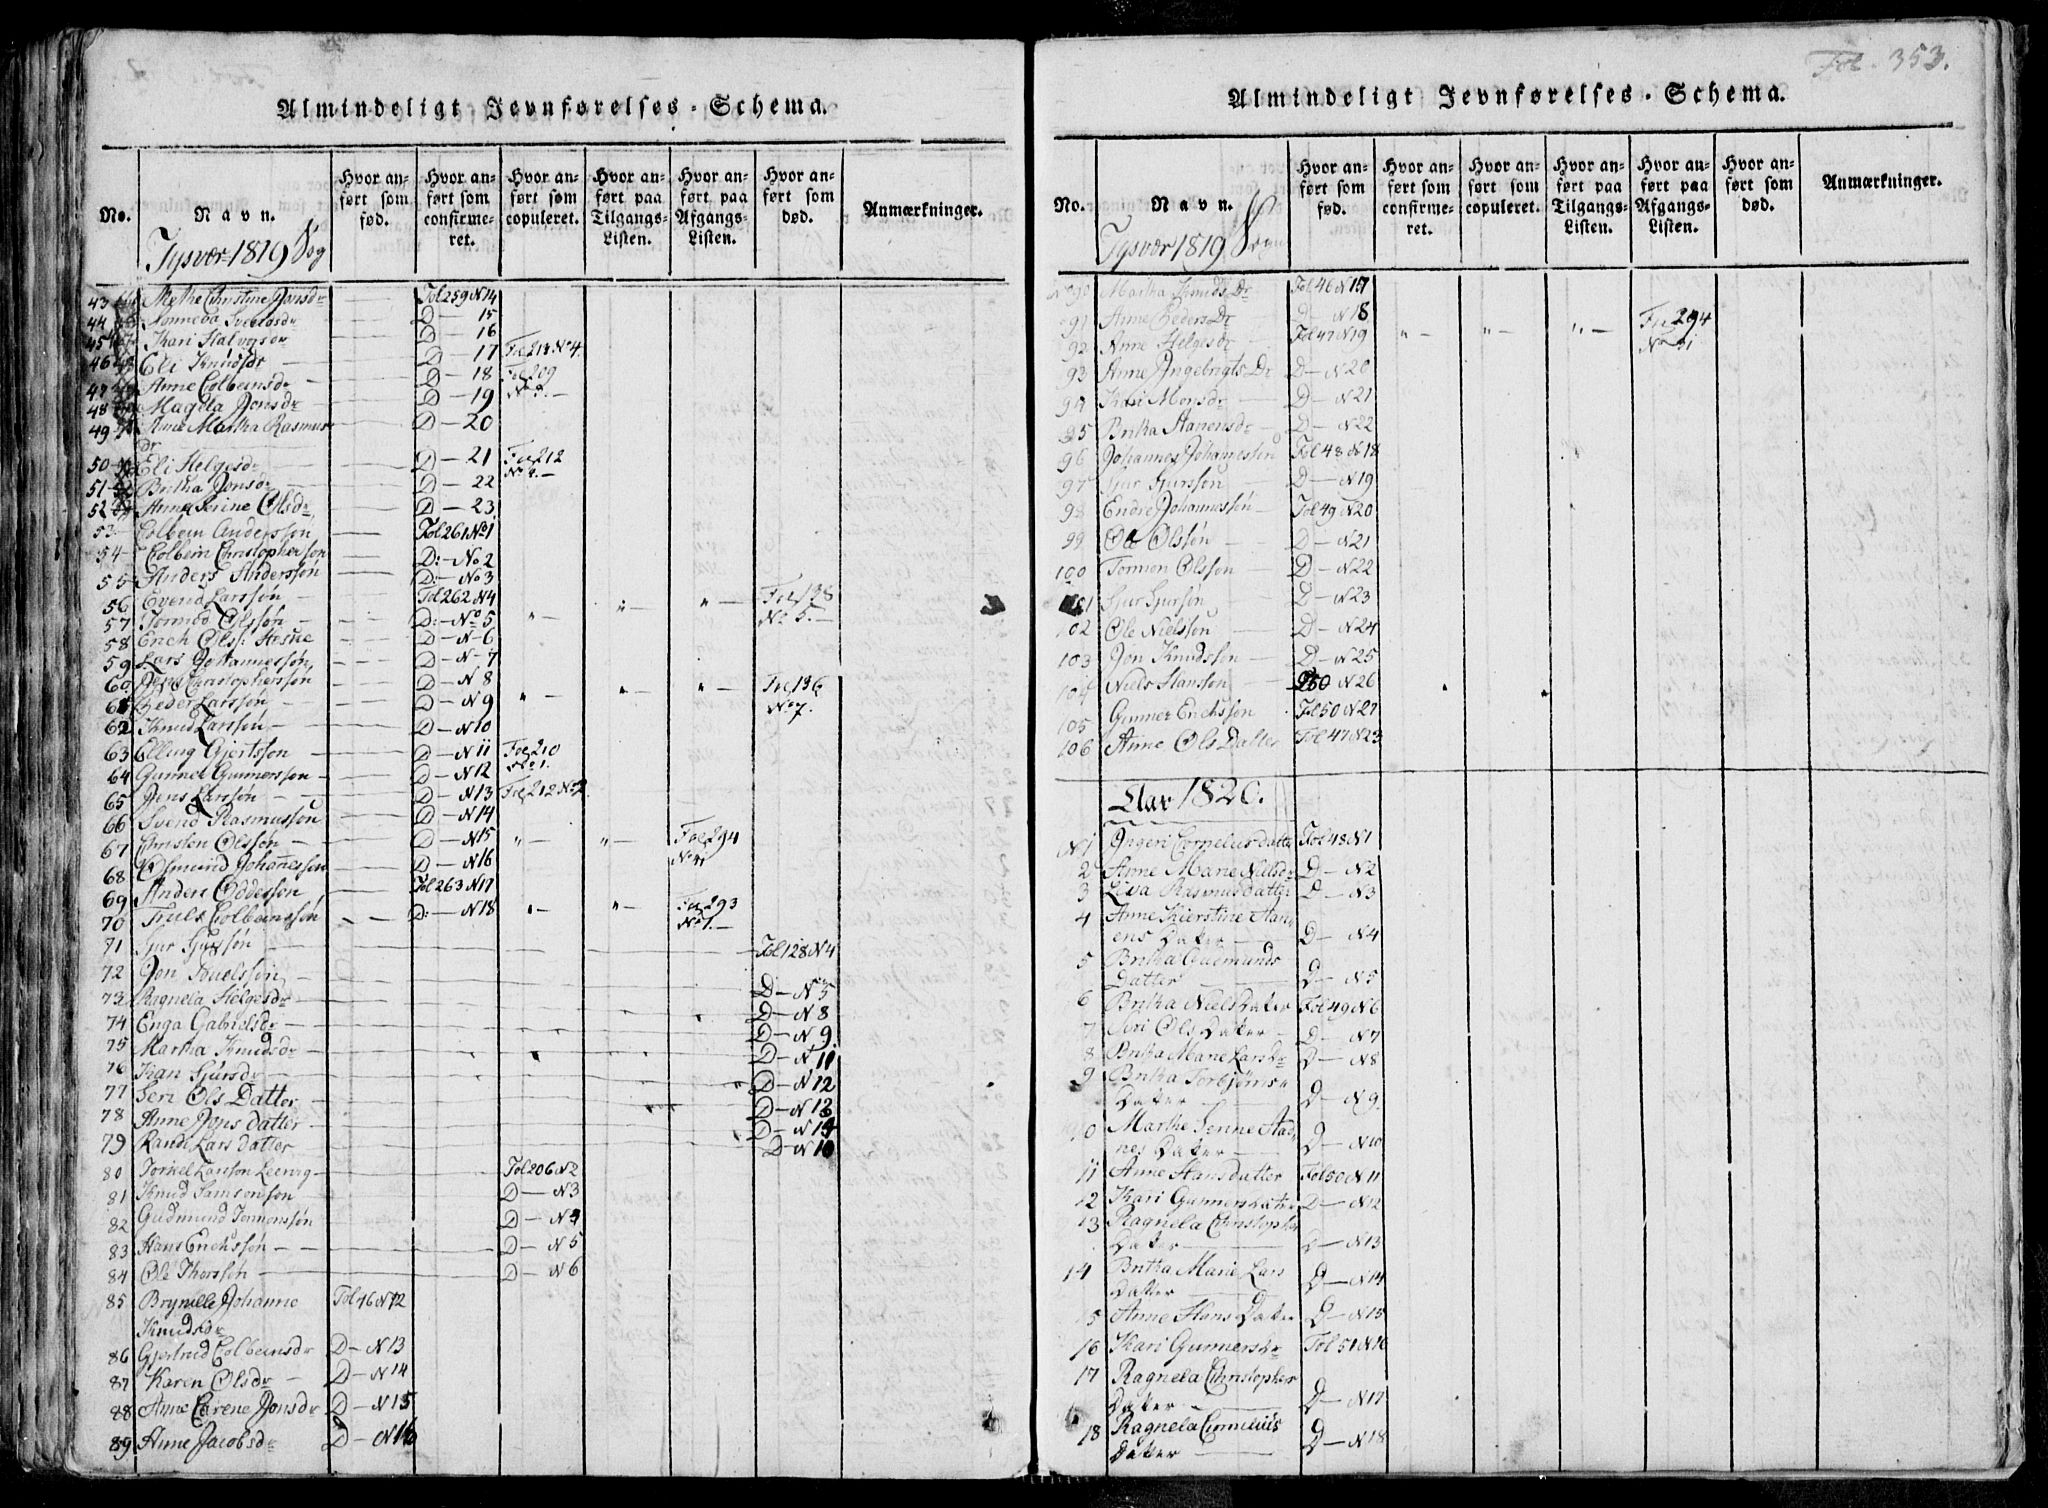 Fol. 353.
Almindeligt Jevnførelses-Schema.
No. Navn. Hvor anført som fød. Hvor anført som confirmeret. Hvor anført som copuleret. Hvor anført paa Tilgangs-Listen. Hvor anført paa Afgangs-Listen. Hvor anført som død. Anmærkninger.
Tysvær 1819 Sog
43 Methe Christine Jonsdr Fol 259 N14
44 Sveinsdr D — 15
45 Kari Halvorsdr D — 16
46 Eli Knudsdr D — 17 Fol 213 No 4.
47 Anne Colbeinsdr D — 18 Fol 209
48 Magela Jonsdr D — 19 No 3.
49 Ane Martha Rasmus D — 20
dr
50 Eli Helgesdr D — 21 Fol 212
51 Britha Jonsdr D — 22 No 4.
52 Anna Serine Olsdr D — 23
53 Colbein Anderssøn Fol 261 No 1
54 Colbein Christophersøn D: — No 2
55 Anders Anderssøn D: — No 3
56 Evend Larssøn Fol 262 N4 Fol 138
57 Tormod Olssøn D: — No 5 No 5.
58 Erich Olss: D — N 6
59 Lars Johannessøn D — N 7
60 Jens Christopherssøn D — N 8 Fol 136
61 Peder Larssøn D — N 9 No 7.
62 Knud Larssøn D — N 10
63 Elling Gjertssøn D — N 11 Fol 210
64 Gunner Gunnerssøn D — N 12 No 1.
65 Jens Larssøn D — N 13 Fol 212 No 2
66 Svend Rasmussøn D — N 14
67 Christen Olssøn D — N 15 Fol 294
68 Osmund Johannessøn D — N 16
69 Anders Oddessøn Fol 263 N 17
70 Truls Colbeinssøn D: — N 18 Fol 293
71 Sjur Sjurssøn No 1. Fol 128 N 4
72 Jon D — N 5
73 Ragnela Helgesdr D — N 8
74 Enga Gabrielsdr D — N 9
75 Martha Knudsdr D — N 11
76 Kari Sjursdr D — N 12
77 Seri Ols Datter D — N 13
78 Anne Jons datter D — N 14
79 Randi Lars datter D — N
80 Torkel Larsson Fol 206 N 2
81 Knud Samsonsøn D — N 3
82 Gudmund Tormonssøn D — N 4
83 Hans Erichssøn D — N 5
84 Ole Thorssøn D — N 6
85 Brynille Johanne Fol 46 N 12
Knudsdr
86 Gjertrud Colbeinsdr D — N 13
87 Karen Olsdr D — N 14
88 Anne Carene Jonsdr D — N 15
89 Anne Jacobsdr D — N 16
Almindeligt Jevnførelses-Schema.
No. Navn. Hvor anført som fød. Hvor anført som confirmeret. Hvor anført som copuleret. Hvor anført paa Tilgangs-Listen. Hvor anført paa Afgangs-Listen. Hvor anført som død. Anmærkninger.
Tysvær 1819 Sogn
No 90 Martha Knuds Dr Fol 46 N 17
91 Anne Peders Dr D — N 18 Fol 294
92 Anne Helgesdr Fol 47 N 19
93 Anne Ingebrigts Dr D — N 20
94 Kari Monsdr D — N 21
95 Britha D — N 22
96 Johannes Johannessøn Fol 48 N 18
97 Sjur Sjurssøn D — N 19
98 Endre Johannessøn Fol 49 N 20
99 Ole Olssøn D — N 21
100 Tormon Olssøn D — N 22
101 Sjur Sjursøn D — N 23
102 Ole Nielssøn D — N 24
103 Jon Knudssøn D — N 25
104 Niels Hanssøn N 26
105 Gunner Erichssøn Fol 50 N 27
106 Anne Ols Datter Fol 47 N 23
Aar 1820.
N 1 Ingeri Cornelius datter Fol 48 N 1
2 Anne Marie Nielsdr D — N 2
3 Liva Rasmusdatter D — N 3
4 Anne Kierstine
ens Datter D — N 4
5 Britha Gudmunds
Datter D — N 5
6 Britha Niels Datter Fol 49 N 6
7 Siri Ols Datter D — N 7
8 Britha Marie Larsdr D — N 8
9 Britha Torbjørns
Datter D — N 9
10 Marthe Serine Aad
nes Datter D — N 10
11 Anne Hansdatter Fol 50 N 11
12 Kari Gunnersdatter D — N 12
13 Ragnela Christopher
Datter D — N 13
14 Britha Marie Lars
Datter D — N 14
15 Anne Hans Datter D — N 15
16 Kari Gunnersdr Fol 51 N 16
17 Ragnela Christopher
Datter D — N 17
18 Ragnela Cornelius
Datter D — N 18